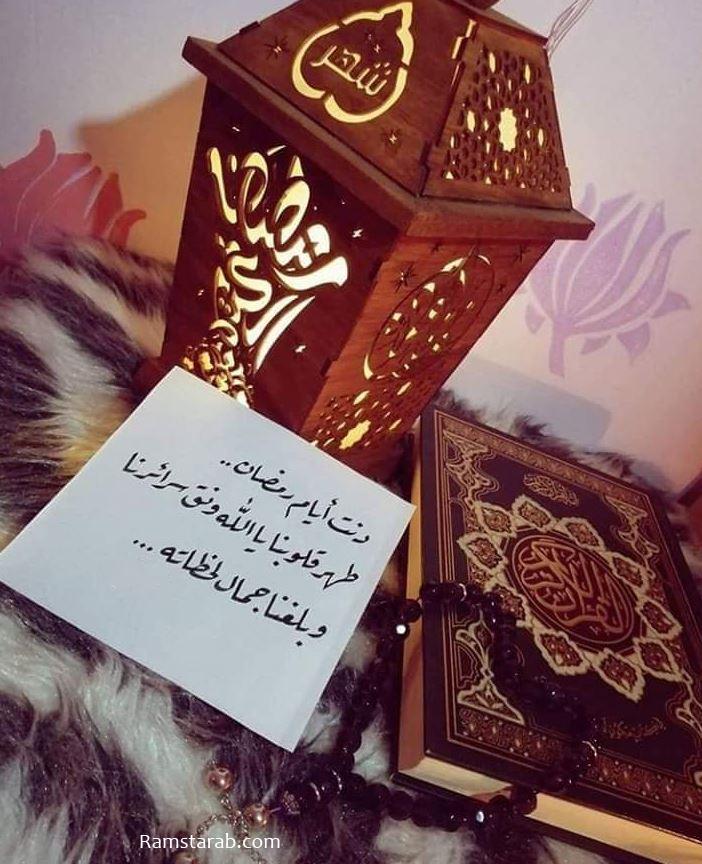 شهر
رمضان
الكريم
دنت أيام رمضان..
طهر قلوبنا يا الله ونق سرائرنا
وبلغنا جمال لحظاته ...
القرآن الكريم
Ramstarab.com